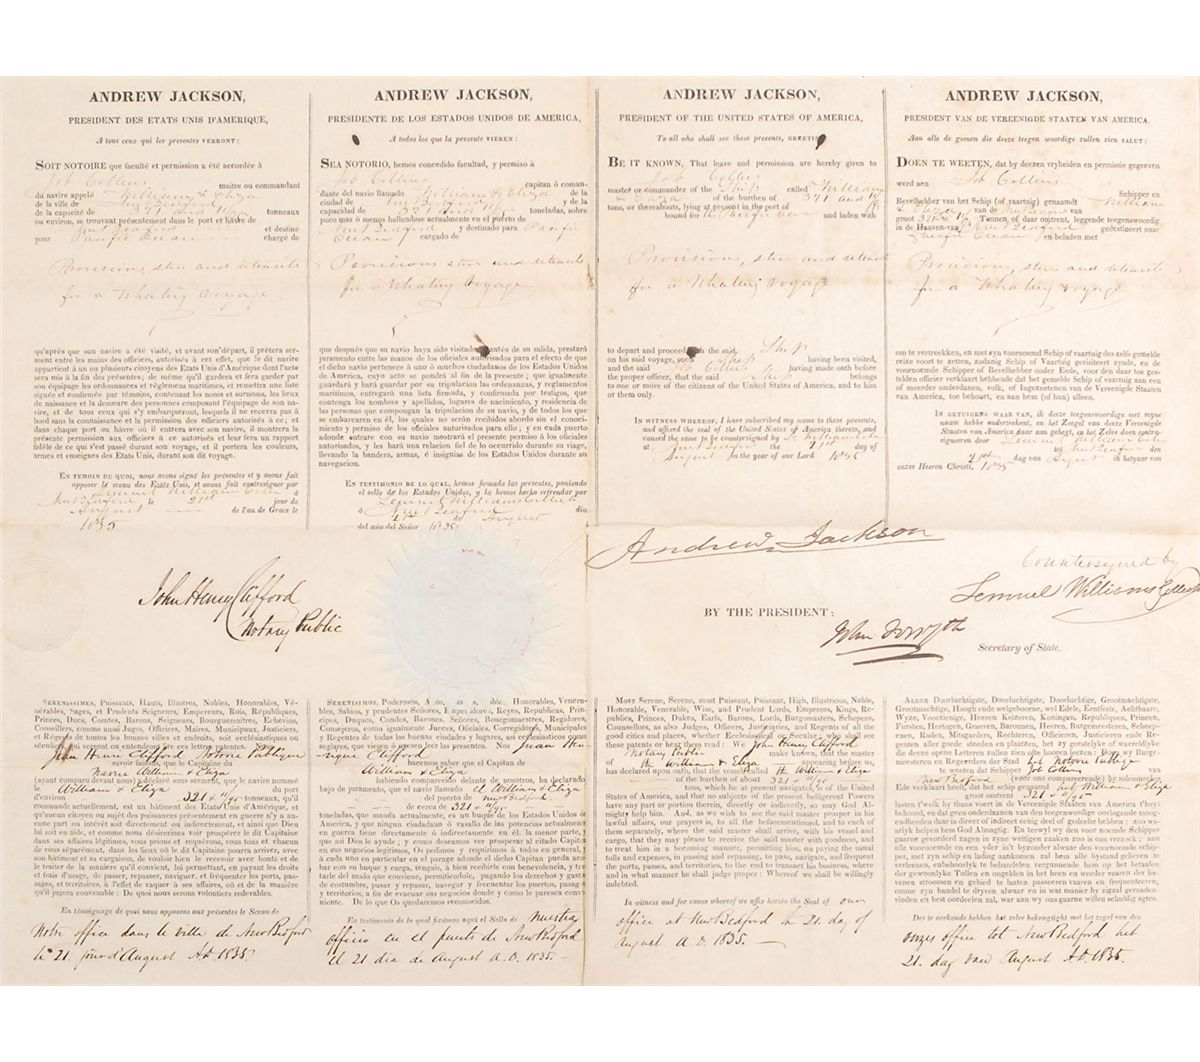 ANDREW JACKSON,
PRESIDENT DES ETATS UNIS D'AMERIQUE,
A tous ceux qui les presentes VERRONT:
SOIT NOTOIRE que faculté et permission a été accordée à
Job Collins maitre ou commandant
du navire appelé William & Eliza
de la ville de New Bedford
de la capacité de 321 and tonneaux
ou environ, se trouvant présentement dans le port et hâvre de
New Bedford et destiné
pour Pacific Ocean chargé de
Provisions, stores and utensils
for a Whaling voyage
qu'après que son navire a été visité, et avant son départ, il prêtera ser-
ment entre les mains des officiers, autorisés à cet effet, que le dit navire
appartient à un ou plusieurs citoyens des Etats Unis d'Amérique dont l'acte
sera mis à la fin des présentes; de même qu'il gardera et fera garder par
son équipage les ordonnances et règlemens maritimes, et remettra une liste
signée et confirmée par témoins, contenant les noms et surnoms, les lieux
de naissance et la demeure des personnes composant l'équipage de son na-
vire, et de tous ceux qui s'y embarqueront, lesquels il ne recevra pas à
bord sans la connaissance et la permission des officiers autorisés à ce; et
dans chaque port ou hâvre où il entrera avec son navire, il montrera la
présente permission aux officiers à ce autorisés et leur fera un rapport
fidèle de ce qui s'est passé durant son voyage, et il portera les couleurs,
armes et enseignes des Etats Unis, durant son dit voyage.
EN TEMOIN DE QUOI, nous avons signé les presentes et y avons fait
apposer le sceau des Etats Unis, et avons fait contresigner par
Lemuel Williams à
New Bedford le 21st jour de
August de l'an de Grace le
1835
ANDREW JACKSON,
PRESIDENTE DE LOS ESTADOS UNIDOS DE AMERICA,
A todos los que la presente VIEREN:
SEA NOTORIO, hemos concedido facultad, y permiso à
Job Collins capitan ó coman-
dante del navio llamado William & Eliza de la
ciudad de New Bedford y de la
capacidad de 321 and toneladas, sobre
poco mas ó menos hallandose actualmente en el puerto de
New Bedford y destinado para Pacific
Ocean cargado de
Provisions, stores and utensils
for a Whaling voyage
que despues que su navio haya sido visitado y antés de su salida, prestará
juramento entre las manos de los oficiales autorizados para el efecto de que
el dicho navio pertenece à uno ó muchos ciudadanos de los Estados Unidos de
America, cuyo acto se pondrá al fin de la presente; que igualmente
guardará y hará guardar por su tripulacion las ordenanzas, y reglamentos
maritimos, entregará una lista firmada, y confirmada por testigos, que
contenga los nombres y apellidos, lugares de nacimiento, y residencia de
las personas que compongan la tripulacion de su navio, y de todos los que
se embarcaren en él, los quales no serán recibidos abordo sin el conoci-
miento y permiso de los oficiales autorizados para ello; y en cada puerto
adonde entrare con su navio mostrará el presente permiso á los oficiales
autorizados, y les hará una relacion fiel de lo ocurrido durante su viage,
llevando la bandera, armas, é insignias de los Estados Unidos durante su
navegacion.
EN TESTIMONIO DE LO QUAL, hemos firmado las presentes, poniendo
el sello de los Estados Unidos, y la hemos hecho refrendar por
Lemuel Williams Collector
á New Bedford dia
21st de August
del año del Señor 1835
ANDREW JACKSON,
PRESIDENT OF THE UNITED STATES OF AMERICA,
To all who shall see these presents, GREETING:
BE IT KNOWN, That leave and permission are hereby given to
Job Collins
master or commander of the Ship called William
& Eliza of the burthen of 321 and
tons, or thereabouts, lying at present in the port of
bound for the Pacific Ocean and laden with
Provisions, stores and utensils
for a Whaling voyage
to depart and proceed with the said Ship
on his said voyage, such Ship having been visited,
and the said Job Collins having made oath before
the proper officer, that the said Ship belongs
to one or more of the citizens of the United States of America, and to him
or them only.
IN WITNESS WHEREOF, I have subscribed my name to these presents,
and affixed the seal of the United States of America thereto, and
caused the same to be countersigned by L. Williams
at New Bedford the 21st day of
August in the year of our Lord 1835
ANDREW JACKSON,
PRESIDENT VAN DE VEREENIGDE STAATEN VAN AMERICA.
Aan alle de geenen die deeze teegen woordige zullen zien SALUT:
DOEN TE WEETEN, dat by deezen vryheiden en permissie gegeeven
werd aen Job Collins Schipper en
Bevelhebber van het Schip (of vaartuig) genaamdt William
& Eliza van de New Bedford van
groot 321 Tonnen, of daar omtrent, leggende teegenswoordig
in de Haaven van New Bedford gedestineert naar
Pacific Ocean en beladen met
Provisions, stores and utensils
for a Whaling voyage
om te vertreekken, en met zyn voornoemd Schip of vaartuig des zelfs gemelde
reize voort te zetten, zodanig Schip of Vaartuig gevisiteert zynde, en de
voornoemde Schipper of Bevelhebber onder Eede, voor den daar toe ges-
telden officier verklaart hebbende dat het gemelde Schip of Vaartuig aan een
of meerder onderdanen, volk, of Ingezeetenen van de Vereenigde Staaten
van America, toe behoort, en aan hem (of hun) alleen.
IN GETUIGENS WAAR VAN, ik deeze teegenwoordige met myne
naam hebbe ondertrekent, en het Zeegel van deeze Vereenigde
Staaten van America daar aan gehegt, en het Zelve doen contra-
signeeren door Lemuel Williams
tot New Bedford den
21st dag van August en hetyaar van
onzes Heeren Christi, 1835
John Henry Clifford
Notary Public
Andrew Jackson
Countersigned by
Lemuel Williams Collector
BY THE PRESIDENT:
John Forsyth
Secretary of State.
SERENISSIMES, Puissants, Hauts, Illustres, Nobles, Honorables, Vé-
nérables, Sages, et Prudents Seigneurs, Empereurs, Rois, Républiques,
Princes, Ducs, Comtes, Barons, Seigneurs, Bourguemaitres, Echevins,
Conseillers, comme aussi Juges, Officiers, Maires, Municipaux, Justiciers,
et Régens de toutes les bonnes villes et endroits, soit ecclésiastiques ou
séculiers qui verront ou entendront lire ces lettres patentes.
Jean Henri Clifford Notoire Publique
savoir faisons, que le Capitaine du
Navire William & Eliza
(ayant comparu devant nous) a déclaré sous serment, que le navire nommé
le William & Eliza du port
d'environ 321 & tonneaux, qu'il
commande actuellement, est un bâtiment des Etats Unis d'Amerique et
qu'aucun citoyen ou sujet des puissances présentement en guerre n'y a au-
cune part ou intérêt soit directement ou indirectement, et ainsi que Dieu
lui soit en aide, et comme nous désirerions voir prospérer le dit Capitaine
dans ses affaires légitimes, vous prions et requérons, vous tous et chacun
de vous séparément, dans les lieux où le dit Capitaine doit arriver, avec
son bâtiment et sa cargaison, de vouloir bien le recevoir avec bonté et de
le traiter de la manière qu'il convient, lui permettant, en payant les droits
et frais d'usage, de passer, repasser, naviguer, et fréquenter les ports, pas-
sages, et territoires, à l'effet de vaquer à ses affaires, où et de la manière
qu'il jugera convenable: De quoi nous serons volontiers redevables.
En témoignage de quoi nous apposons aux présentes le Sceau de
Notre office dans le ville de New Bedford
le 21 jour d'August AD 1835
SERENISIMOS, Poderosos, Honorables, Venera-
bles, Sabios, y prudentes Señores, Emperadores, Reyes, Republicas, Prin-
cipes, Duques, Condes, Barones, Señores, Bourgomaestres, Regidores,
Consejeros, como igualmente Jueces, Oficiales, Corregidores, Municipales
y Regentes de todas las buenas ciudades y lugares, asi eclesiasticos como
seglares, que viesen ó oyesen leer las presentes. Nos Juan Hen-
rique Clifford
hacemos saber que el Capitan de
William & Eliza
habiendo comparecido delante de nosotros, ha declarado
bajo de juramento, que el navio llamado el William & Eliza
del puerto de New Bedford
de cerca de 321 &
toneladas, que manda actualmente, es un buque de los Estados Unidos de
America, y que ningun ciudadano ó vasallo de las potencias actualmente
en guerra tiene directamente ó indirectamente en él, la menor parte, y
que asi Dios le ayude; y como deseamos ver prosperar al citado Capitan
en sus negocios legitimos, Os pedimos y requirimos á todos en general, y
á cada uno en particular en el parage adonde el dicho Capitan pueda arri-
bar con su buque y carga, tengais, á bien recibirle con benevolencia, y tra-
tarle del modo que conviene, permitiendole, pagando los derechos y gastos
de costumbre, pasar y repasar, navegar y frecuentar los puertos, pasages
y territorios, a fin de evacuar sus negocios donde y como le paresca conve-
niente. De lo que Os quedaremos reconocidos.
En testimonio de lo qual fixamos aqui el Sello de nuestra
officio en el puerto de New Bedford
el 21 dia de August A.D. 1835
MOST Serene, Serene, most Puissant, Puissant, High, Illustrious, Noble,
Honorable, Venerable, Wise, and Prudent Lords, Emperors, Kings, Re-
publics, Princes, Dukes, Earls, Barons, Lords, Burgomasters, Schepens,
Counsellors, as also Judges, Officers, Justiciaries, and Regents of all the
good cities and places, whether Ecclesiastical or Secular, who shall see
these patents or hear them read: We John Henry Clifford
Notary Public make known, that the master
of th William & Eliza appearing before us,
has declared upon oath, that the vessel called th William & Eliza
of the burthen of about 321 &
tons, which he at present navigates, is of the United
States of America, and that no subjects of the present belligerent Powers
have any part or portion therein, directly or indirectly, so may God Al-
mighty help him. And, as we wish to see the said master prosper in his
lawful affairs, our prayer is, to all the beforementioned, and to each of
them separately, where the said master shall arrive, with his vessel and
cargo, that they may please to receive the said master with goodness, and
to treat him in a becoming manner, permitting him, on paying the usual
tolls and expenses, in passing and repassing, to pass, navigate, and frequent
the ports, passes, and territories, to the end to transact his business, where
and in what manner he shall judge proper: Whereof we shall be willingly
indebted.
In witness and for cause whereof we affix hereto the Seal of our
office at New Bedford the 21. day of
August A.D. 1835.
ALDER Doorluchtigste, Doorluchtigste, Doorluchtige, Grootmachtigste,
Grootmachtige, Hoogh ende welgeboorene, wel Edele, Erntfeste, Achtbaare,
Wyze, Voorzienige, Heeren Keizeren, Koningen, Republiquen, Princen,
Fursten, Hertogen, Graeven, Baronnen, Heeren, Burgermeesteren, Scheep-
enen, Raden, Mitsgarders, Rechteren, Officieren, Justicieren ende Re-
genten aller goede steeden en plaatzen, het zy geestelyke of waereldlyke
die deeze opene Letteren zullen zien ofte hooren leezen: Doen wy Burge-
meesteren en Regeerders der Stad het Notoire Publique
te weeten dat Schipper Job Collins van
New Bedford (voor ons compareerende) by solemneelen
Ede verklaart heeft, dat het schip genaamd het William & Eliza
groot omtrent 321 &
lasten t'welk hy thans voert in de Vereenigde Staaten van America t'huys
behoord, en dat geen onderdaanen van den teegenwoordige oorloogende moog-
endheeden daar in direct of indirect eenig deel of gedeelte hebben: zoo wa-
arlyk helpen hem God Almagtig. En terwyl wy den voor noemde Schipper
gaarne gevordert zagen in zyne wettigen zaaken zoo is ons verzoek: aan
alle voornoemde en een yder in't byzonder alwaer den voornoemde schip-
per, met zyn schip en lading aankomen zal hem alle bystand gelieven te
verleenen, enbehoorlyk te behandelen vergunnende hem op het betaelen
der gewoonlyke Tollen en ongelden in het heen en weeder vaaren der ha-
venen stroomen en gebied te laten passeeren vaaren en frequenteeren,
omme zyn handel te dryven alwaer en in wat manier by zal geraaden-
vinden en best oordeelen zal, war aan wy ons gaarne willen schuldig agten.
Des te oerkonde hebben het zelve bekragtigt met het zegel van den
onzes office tot New Bedford het
21. dag van August AD. 1835.